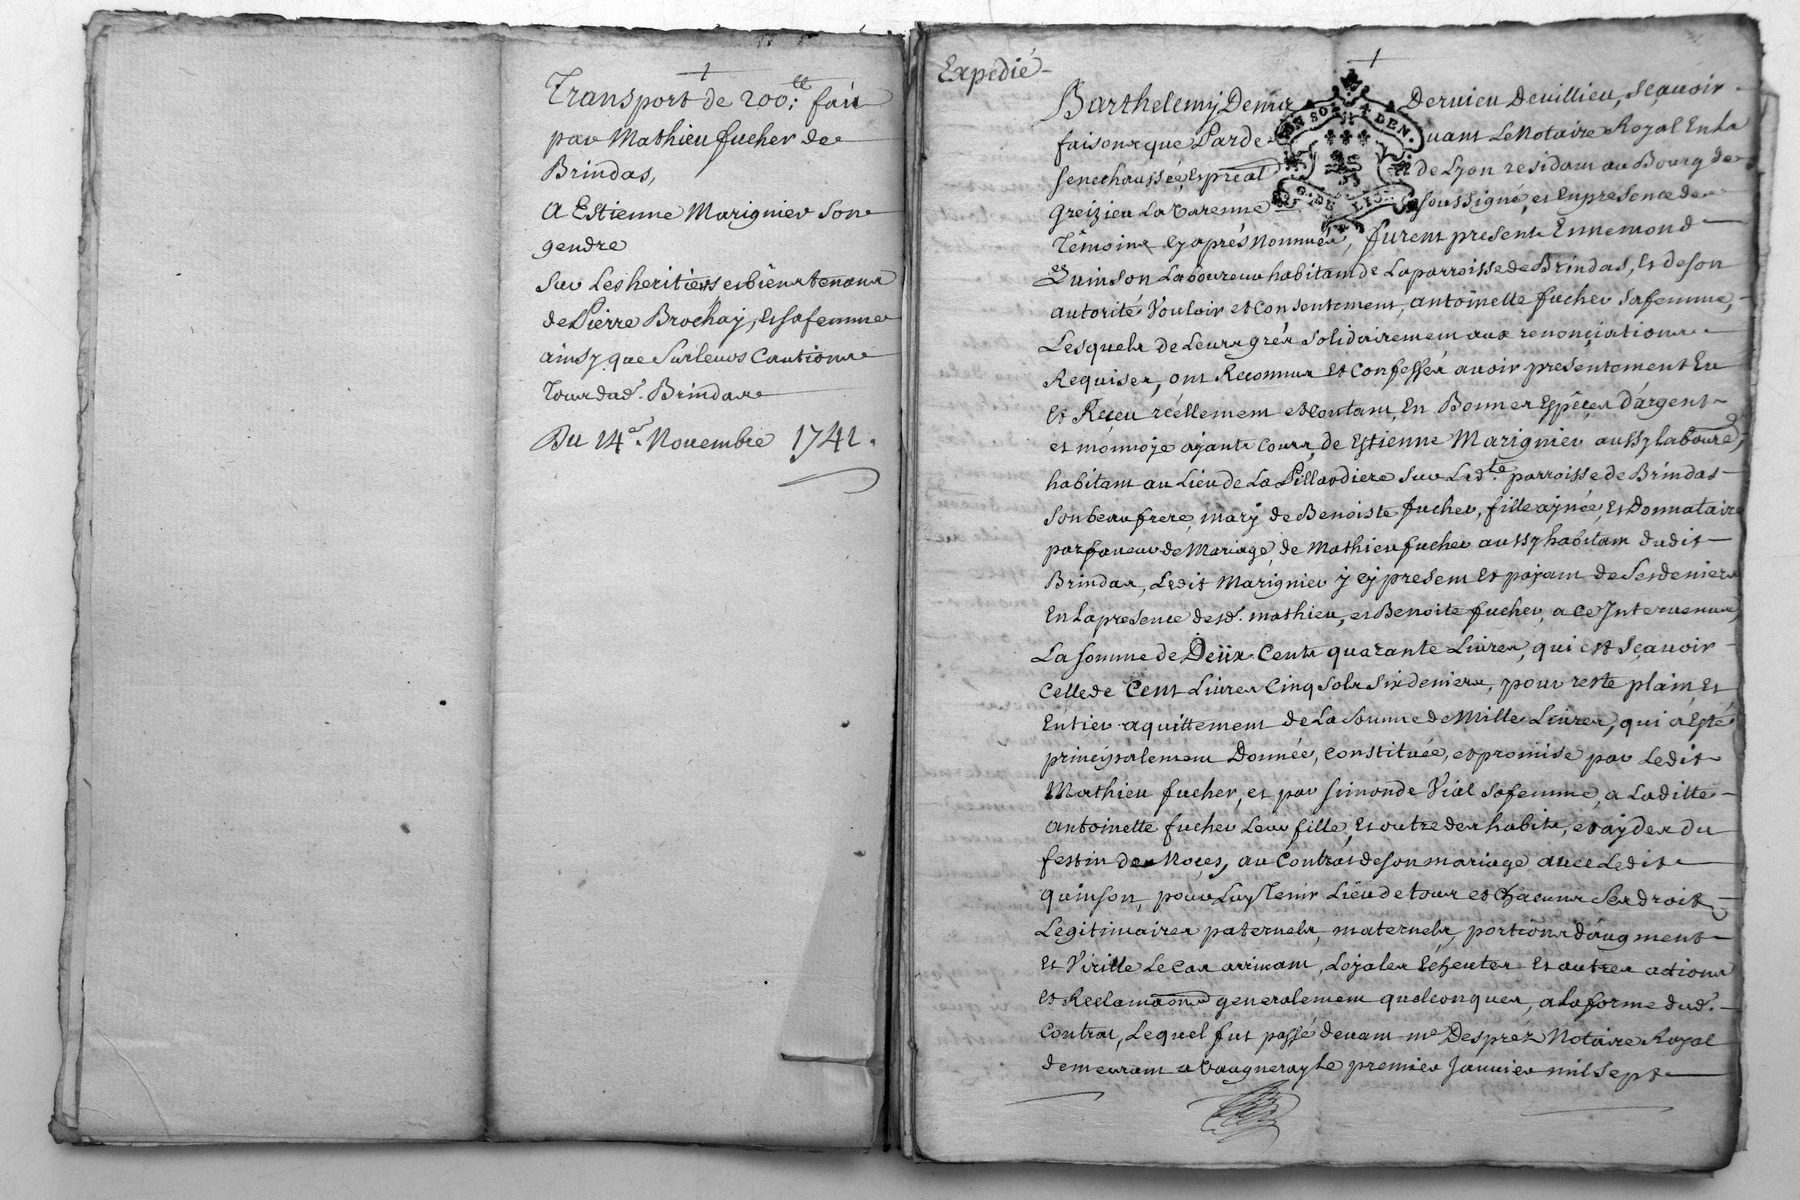 Transport de 200.tt fait
par Mathieu fucher de
Brindas,
A Estienne Marignier son
gendre
sur Les heritiers et bien tenans
de Pierre Brochay, et sa femme
ainsy que sur leurs Cautions
tous dud. Brindas
Du 14e. Novembre 1741.
Expedié
Barthelemy Deni Dervieu Devillieu, sçavoir
faisons que Parde uant Le Notaire Royal En La
senechaussée, et presal de Lyon residant au Bourg de
Greizieu La Varenne soussigné, et En presence de
Témoins cy après nommés, furent present Ennemond
Quinson Laboureur habitant de La parroisse de Brindas, et de son
autorité Vouloir et Consentement, antoinette fucher sa femme,
Lesquels de Leurs grés solidairement aux renonciations
Requises, ont Reconnus et Confessés avoir presentement Eu
et Receu réellement et contant, En Bonnes Espèces D'argent
et monnoye ayants cours, de Estienne Marignier aussy laboure.
habitant au Lieu de La Pillardiere sur Led.te parroisse de Brindas
son beaufrere, mary de Benoiste fucher, fille aynée, et Donnataire
par faveur de Mariage, de Mathieu fucher aussy habitant dudit
Brindas, Ledit Marignier y cy present et payant de ses deniers
En La presence desd. mathieu, et Benoite fucher, a ce Intervenus,
La somme de Deux Cents quarante Livres, qui est sçavoir
Celle de Cent Livres Cinq sols six deniers, pour reste plain et
Entier aquittement de La somme de Mille Livres, qui a Esté
principalement Donnée, constituée, et promise par Ledit
Mathieu fucher, et par simonde Vial sa femme, a Laditte
antoinette fucher Leur fille, et outre des habits, et ayder du
festin des Noçes, au Contrat de son mariage avec Ledit
quinson, pour Luy Tenir Lieu de tous et chacuns ses droits
Légitimaires paternels, maternels, portions d'augment
et Virille Le Cas arrivant, Loyales Echeutes et autres actions
et Reclamaons generalement quelconques, a La forme dud.
Contrat, Lequel fut passé devant me Desprez Notaire Royal
demeurant a Vaugneray Le premier Janvier mil sept